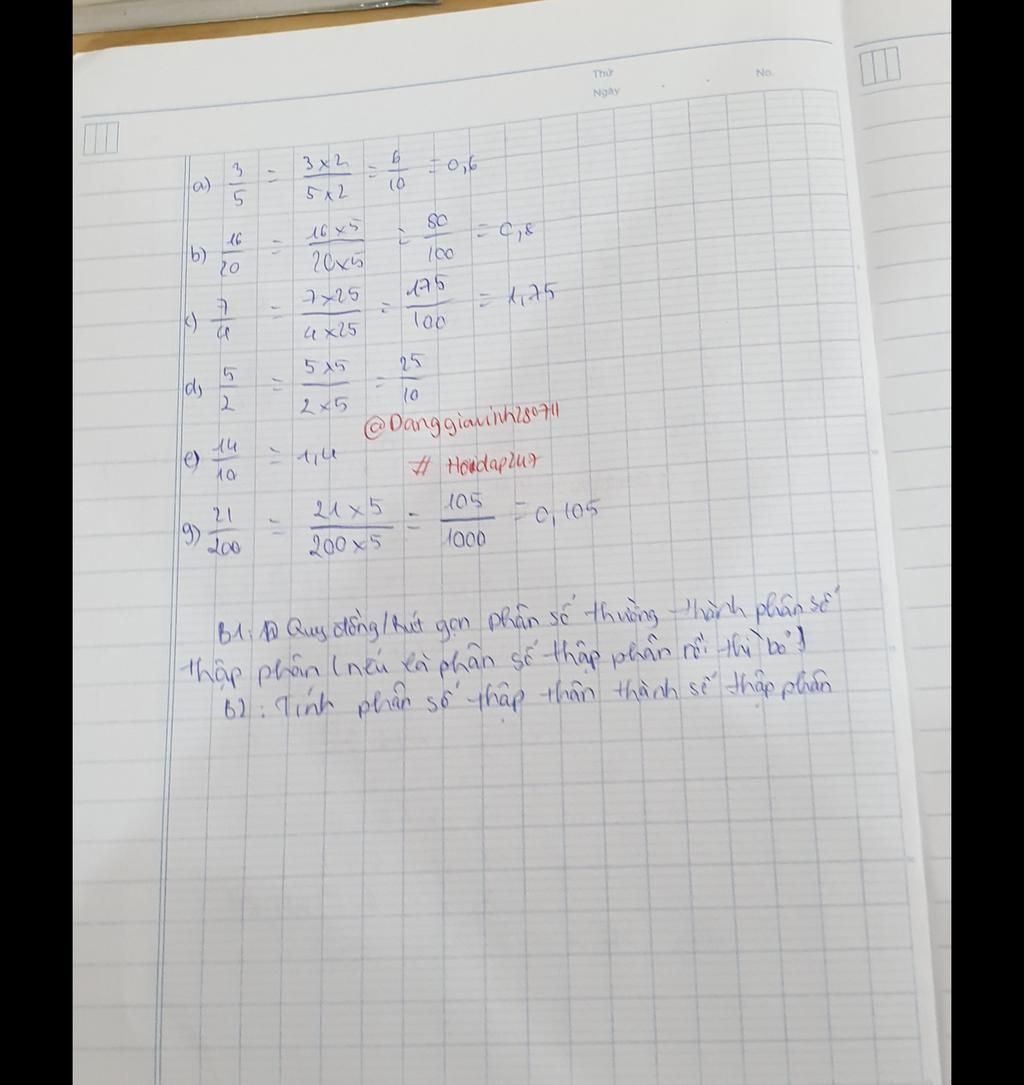 Thứ
No.
Ngày
a) 3/5 = 3x2/5x2 = 6/10 = 0,6
b) 16/20 = 16x5/20x5 = 80/100 = 0,8
c) 7/4 = 7x25/4x25 = 175/100 = 1,75
d) 5/2 = 5x5/2x5 = 25/10
@Danggiavinh280711
e) 14/10 = 1,4
# Hoidap247
g) 21/200 = 21x5/200x5 = 105/1000 = 0,105
B1: Quy đồng/Rút gọn phân số thường thành phân số
thập phân (nếu là phân số thập phân rồi thì bỏ)
B2: Tính phân số thập thân thành số thập phân